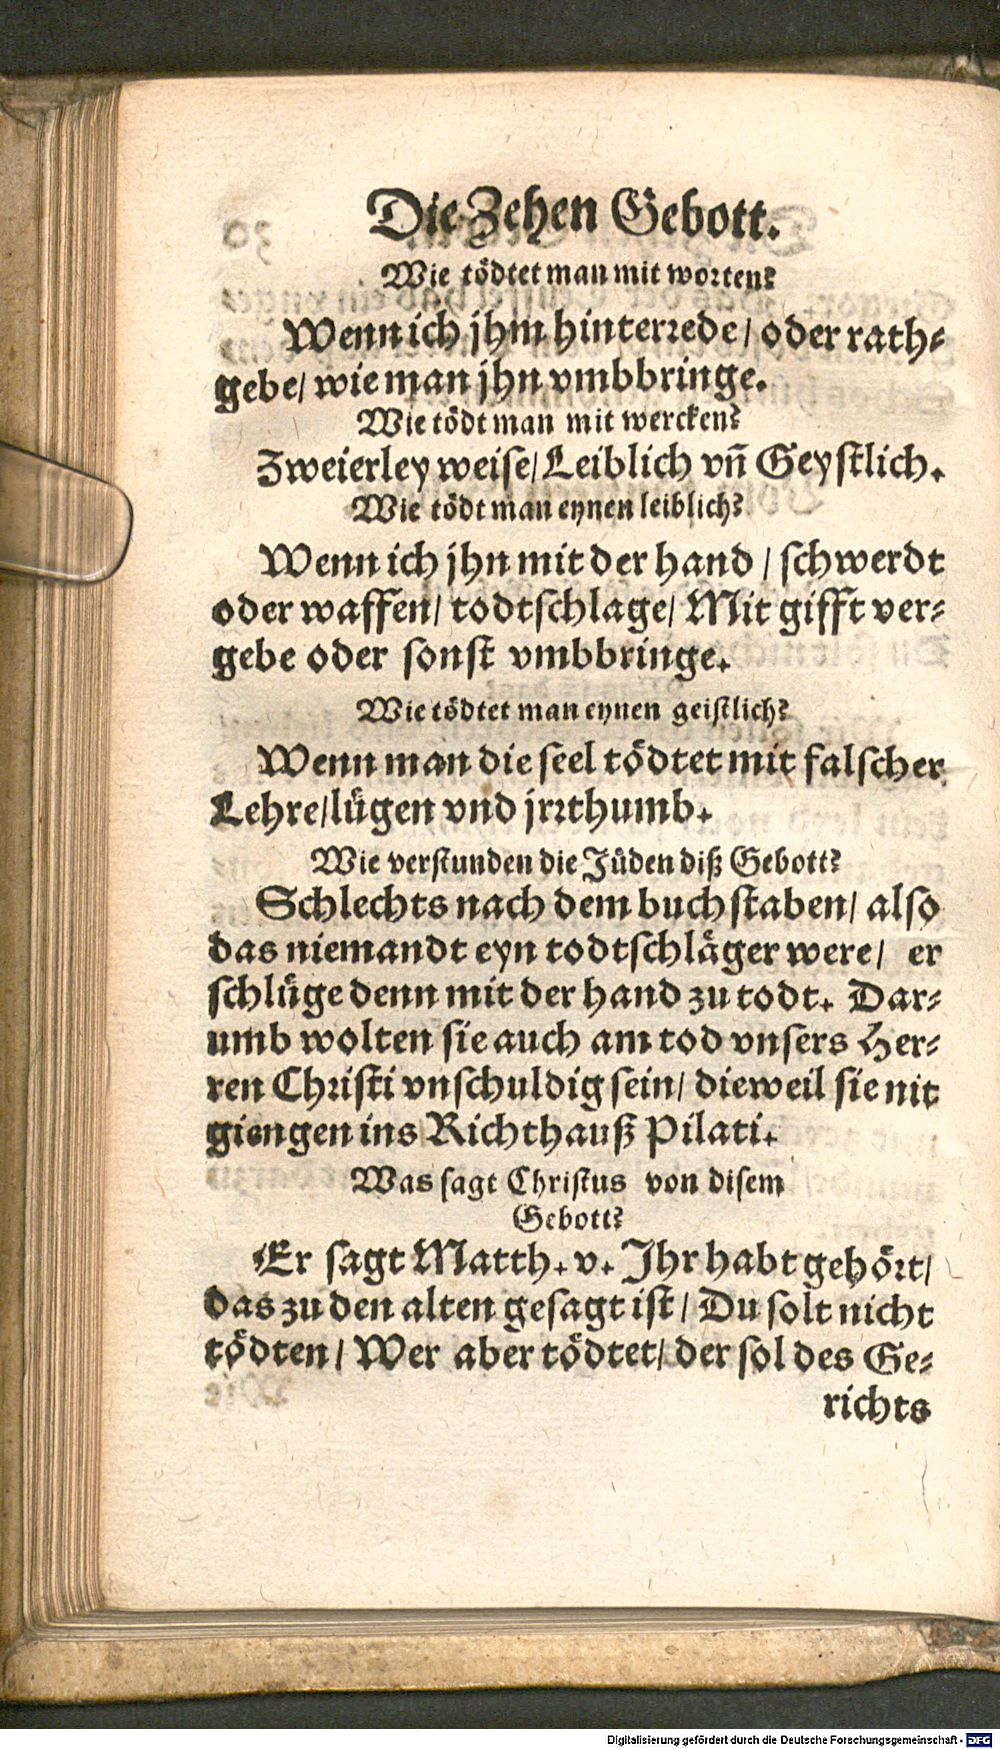 Die Zehen Gebott.
Wie tödtet man mit worten?
Wenn ich jhm hinterrede/ oder rath⸗
gebe/ wie man jhn vmbbringe.
Wie tödt man mit wercken?
Zweierley weise/ Leiblich vñ Geystlich.
Wie tödt man eynen leiblich?
Wenn ich jhn mit der hand / schwerdt
oder waffen/ todtschlage/ Mit gifft ver⸗
gebe oder sonst vmbbringe.
Wie tödtet man eynen geistlich?
Wenn man die seel tödtet mit falscher
Lehre/ lügen vnd jrrthumb.
Wie verstunden die Jüden diß Gebott?
Schlechts nach dem buchstaben/ also
das niemandt eyn todtschläger were/ er
schlüge denn mit der hand zu todt. Dar⸗
umb wolten sie auch am tod vnsers Her⸗
ren Christi vnschuldig sein/ dieweil sie nit
giengen ins Richthauß Pilati.
Was sagt Christus von disem
Gebott?
Er sagt Matth. v. Jhr habt gehört/
das zu den alten gesagt ist / Du solt nicht
tödten / Wer aber tödtet/ der sol des Ge⸗
richts
Digitalisierung gefördert durch die Deutsche Forschungsgemeinschaft - DFG